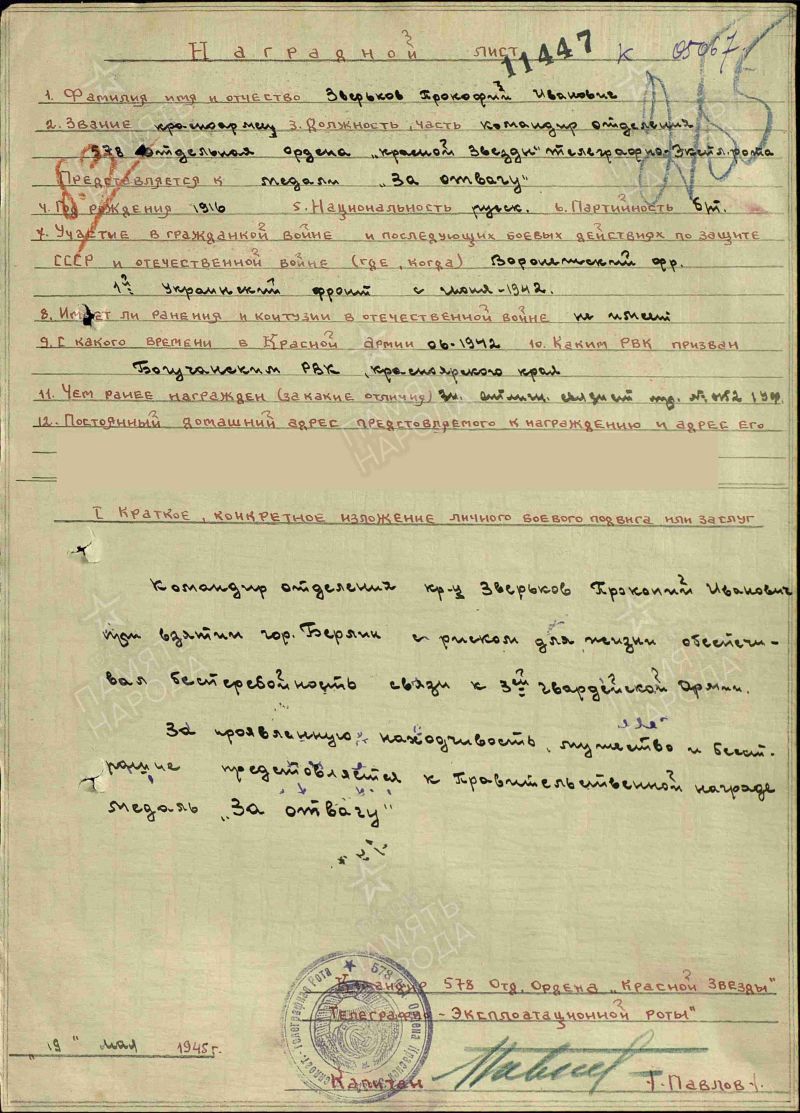 Наградной лист 11447 к 05067
1. Фамилия имя и отчество Зверьков Прокофий Иванович
2. Звание красноармеец 3. Должность, часть командир отделения
578 отдельная ордена „красной Звезды" телеграфно-Экспл. рота
Представляется к медали „За отвагу"
4. Год рождения 1916 5. Национальность русск. 6. Партийность б/п.
7. Участие в гражданкой войне и последующих боевых действиях по защите
СССР и отечественной войне (где, когда) Воронежский фр.
1й Украинский фронт с июня-1942.
8. Имеет ли ранения и контузии в отечественной войне не имеет
9. С какого времени в Красной армии 06-1942 10. Каким РВК призван
Богучанским РВК, красноярского края
11. Чем ранее награжден (за какие отличия) Зн. отличн. связист
12. Постоянный домашний адрес предстовляемого к награждению и адрес его
I Краткое, конкретное изложение личного боевого подвига или заслуг
Командир отделения кр-ц Зверьков Прокопий Иванович
при взятии гор. Берлин с риском для жизни обеспечи-
вал бесперебойность связи к 3ей гвардейской Армии.
За проявленную находчивость, мужество и бесст-
рашие предстовляется к Правительственной награде
медаль „За отвагу"
Командир 578 Отд. Ордена „Красной Звезды"
Телеграфно-Эксплоатационной роты"
„19" мая 1945 г.
Капитан /-Павлов-/.
ПАМЯТЬ НАРОДА